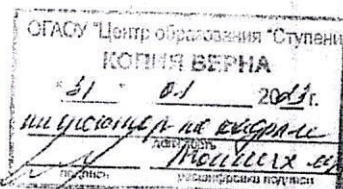 ОГАОУ "Центр образования "Ступени
КОПИЯ ВЕРНА
"31" 01 2023г.
инспектор по кадрам
должность
подпись расшифровка подписи